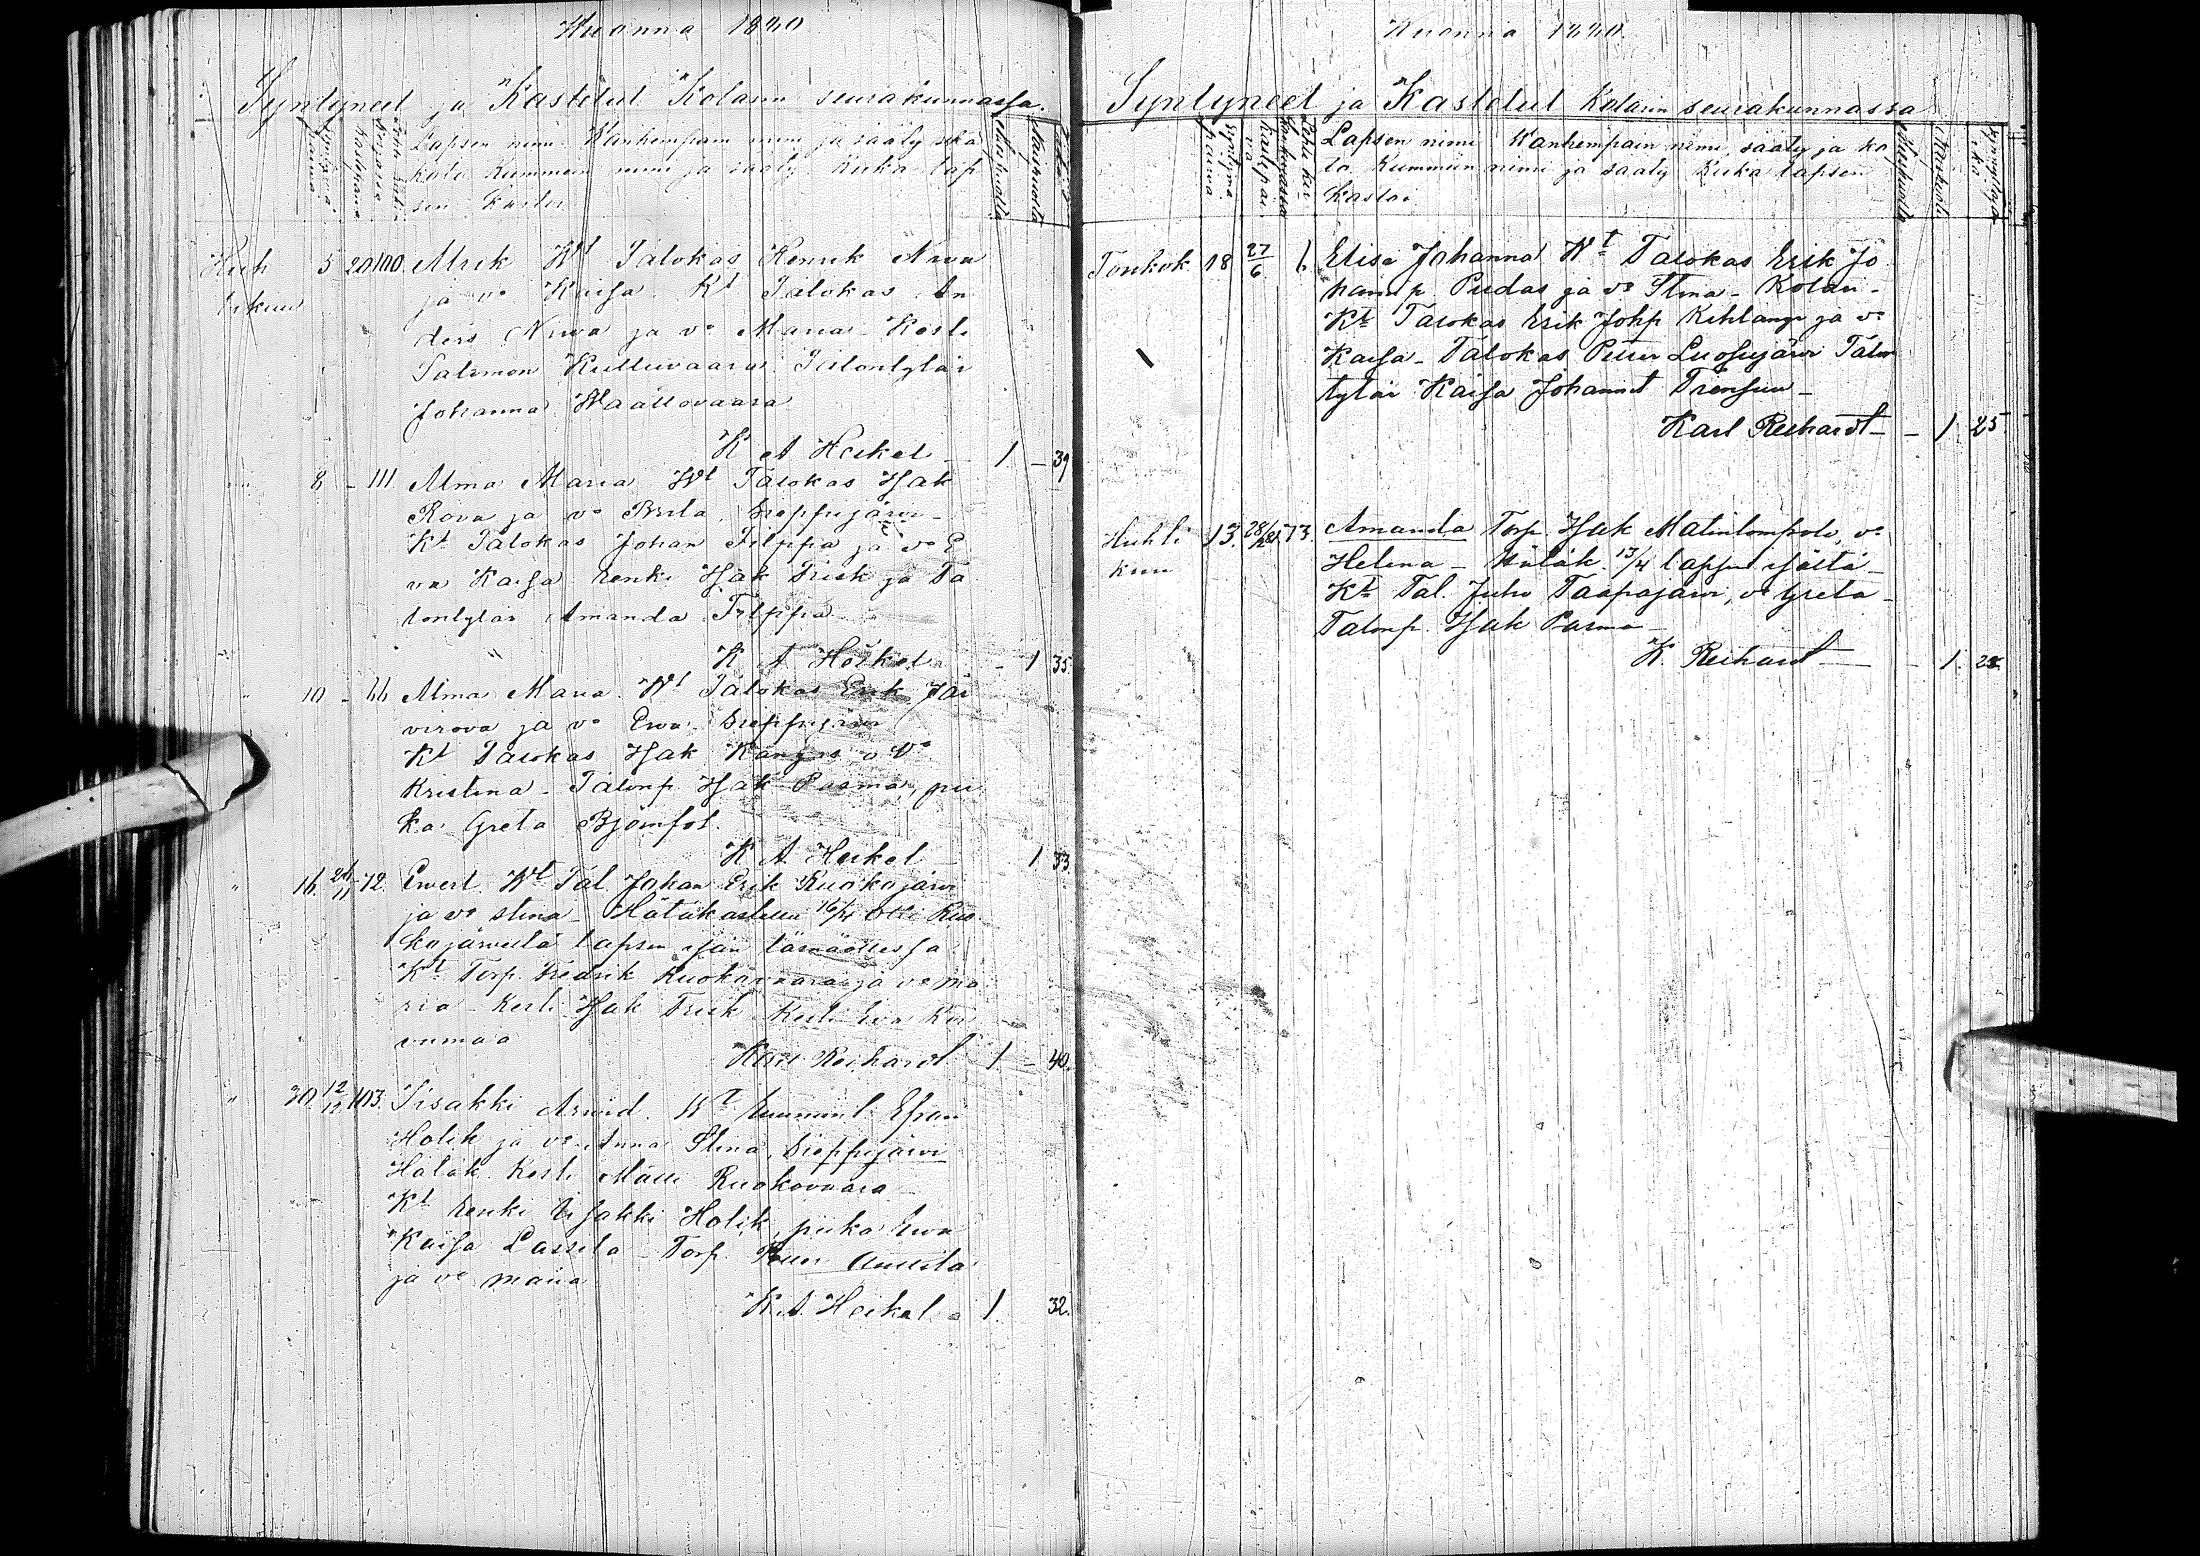 Wuonna 1880
Syntyneet ja Kastetut Kolarin seurakunnassa.
Lapsen nimi Wanhempain nimi ja sääty sekä
koto Kummein nimi ja sääty Kuka lap
sen kastoi
Huh 5 20 100. Alrik Wt Talokas Henrik Niwa
tikuu ja vo Kaisa Kt Talokas An
ders Niwa ja vo Maria Kesti
Salomon Kulluvaara Talontytär
Johanna Waattovaara
K A Heikel 1 – 39
8 – 111 Alma Maria Wt Talokas Isak
Rova ja vo Brita, Sieppijärvi
Kt Talokas Johan Filppa ja vo E
va Kaisa renki Isak Frisk ja Ta
lontytär Amanda Filppa
K A Heikel – 1 35
10 – 66 Alma Maria Wt Talokas Erik Jär
virova ja vo Ewa Sieppijärvi
Kt Talokas Isak Kangas o Vo
Kristina – Talonp Isak Pasma, pii
ka Greta Björnfot.
K A Heikel 1 33
16 72. Ewert Wt Tal Johan Erik Ruokojärvi
ja vo Stina – Hätäkastettu 16/4 Olli Ruo
kojärveltä lapsen isän läsnäollessa
Kt Torp. Fredrik Ruokovaara ja vo Ma
ria – Kesti Isak Frisk Kesti Eva Kur
Karl Reichardt 1 – 40.
30 103. Iisakki Arvid. Wt Emmanl Efraim
Holik ja vo Anna Stina, Sieppijärvi
Hätäk. Kesti Matti Ruokovaara
Kt renki Iisakki Holik, piika Ewa
Kaisa Lassila – Torp.
ja vo Maria
K. A. Heikel 1. 32.
Wuonna 1880
Syntyneet ja Kastetut Kolarin seurakunnassa
Lapsen nimi Wanhempain nimi, sääty ja ko
to Kummiin nimi ja sääty Kuka lapsen
kastoi
Toukok 18 27/6 6. Elisa Johanna Wt Talokas Erik Jo
hanp. Pudas ja vo Stina – Kolari –
Kt Talokas Erik Johp Kihlangi ja vo
Kaisa – Talokas Petter Luosujärvi Talon
tytär Kaisa Johannet
Karl Reichardt – – 1. 25
Huhti 13. 73. Amanda Torp. Isak Matinlompolo, vo
kuu Helena – Hätäk. 13/4 lapsen isältä –
Kt Tal. Juho Taapajärvi, vo Greta –
Talonp. Isak Pasma –
K. Reichardt – 1. 28